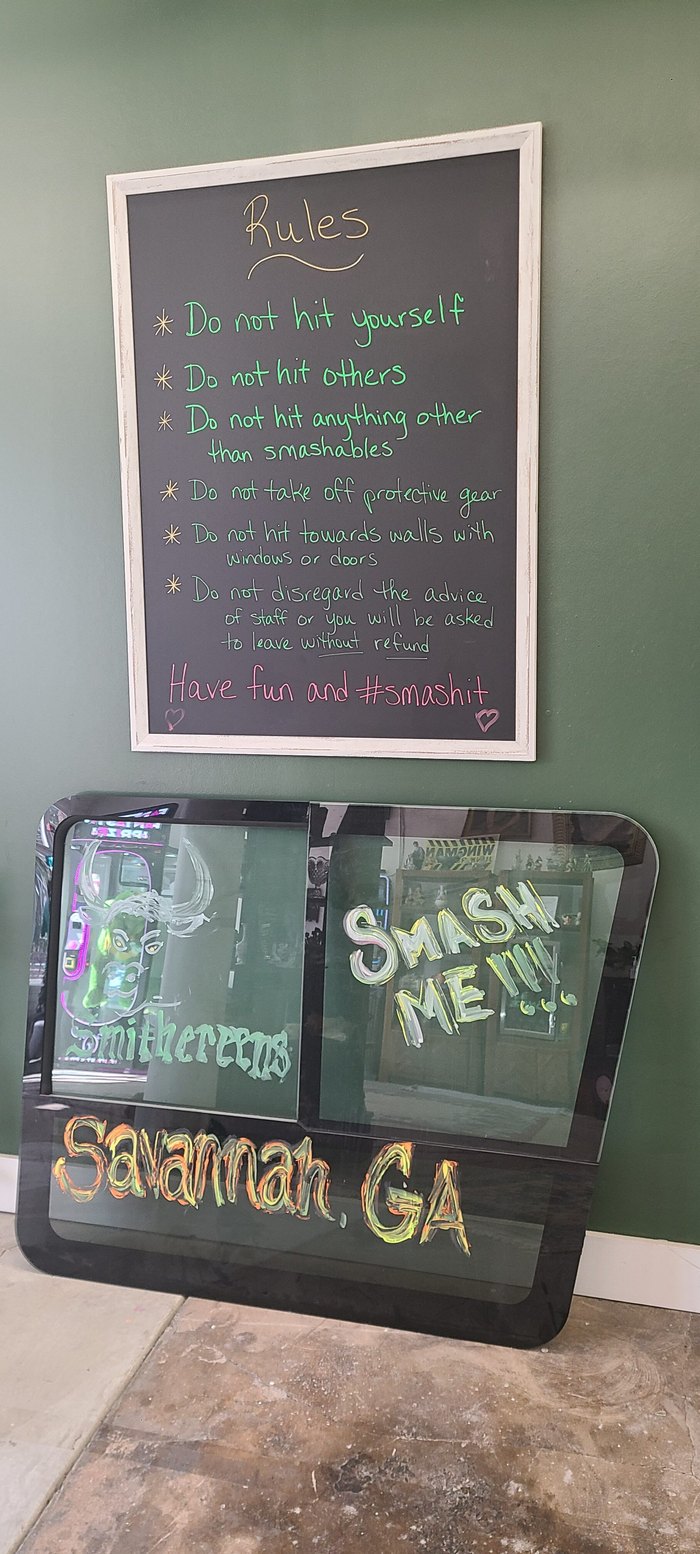 Rules
* Do not hit yourself
* Do not hit others
* Do not hit anything other
than smashables
* Do not take off protective gear
* Do not hit towards walls with
windows or doors
* Do not disregard the advice
of staff or you will be asked
to leave without refund
Have fun and #smashit
SMASH
ME!!!
Smithereens
Savannah, GA